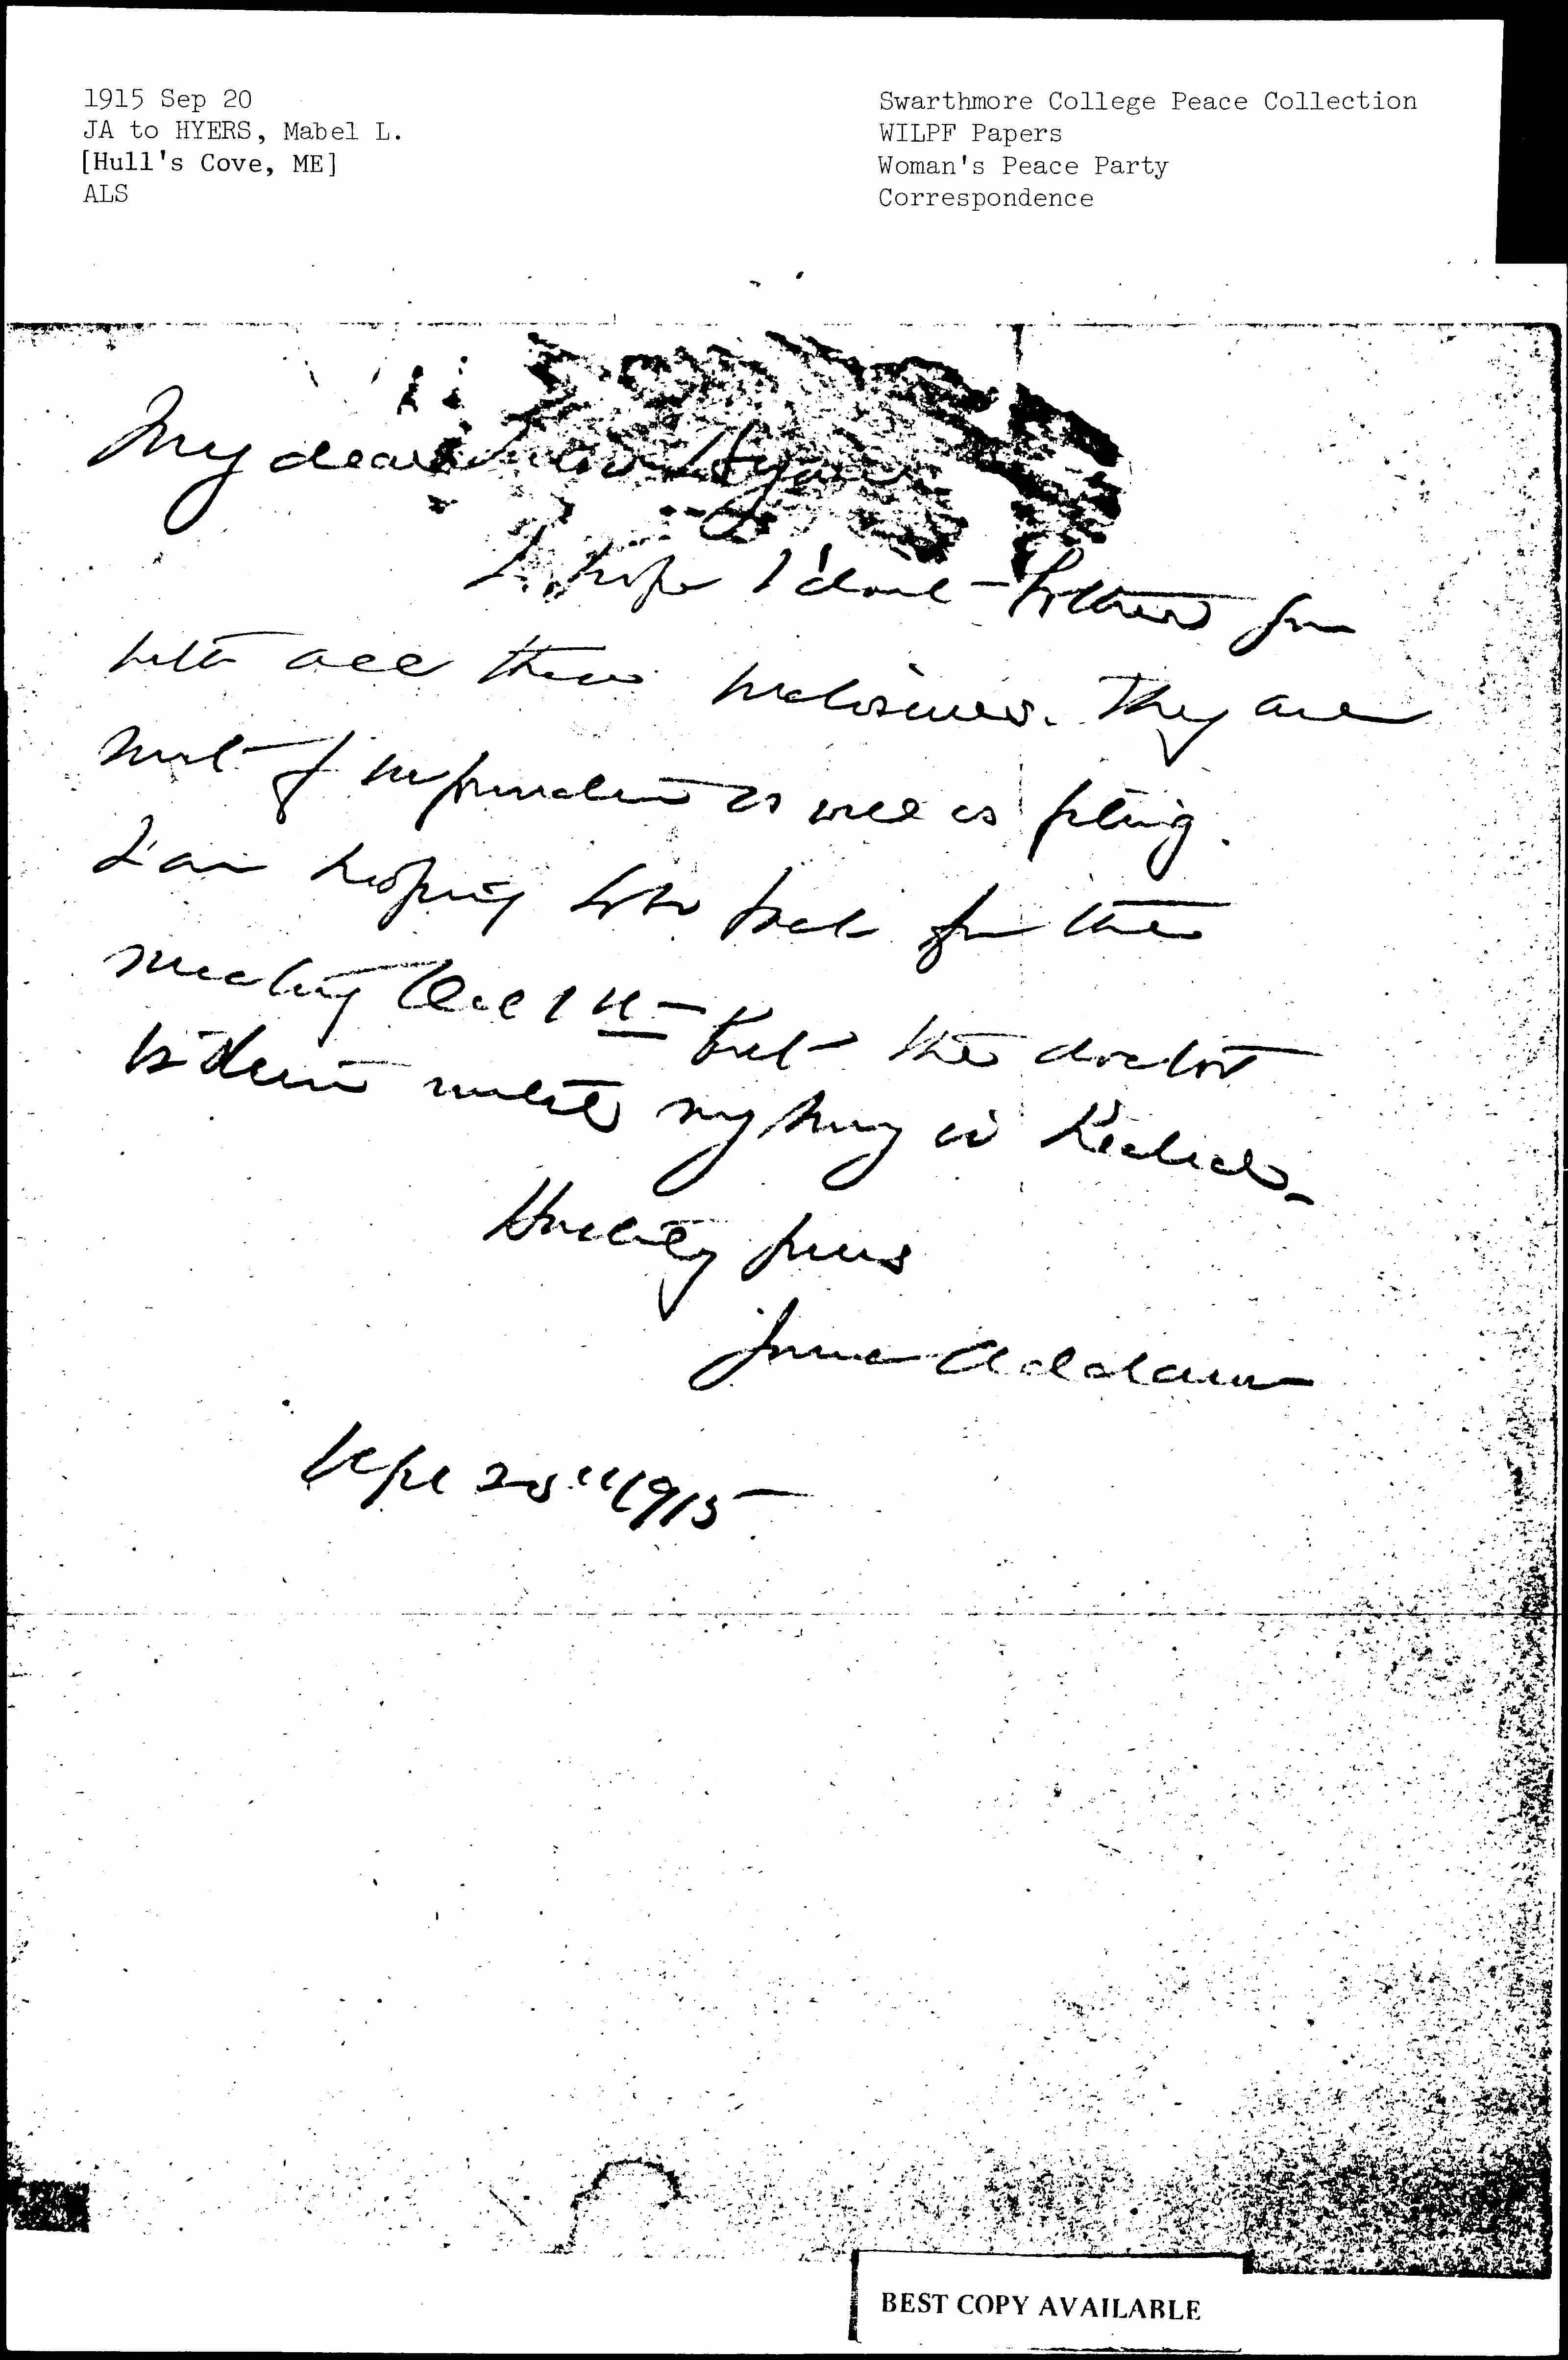 1915 Sep 20
JA to HYERS, Mabel L.
[Hull's Cove, ME]
ALS
Swarthmore College Peace Collection
WILPF Papers
Woman's Peace Party
Correspondence
My dear Hyers
I hope I don't bother you
with all these inclosures. They are
most of information as well as filing.
I am hoping to be back for the
meeting Oct 1st but the doctor
is my lung is healed.
Hastily yours
Jane Addams
Sept 20" 1915
BEST COPY AVAILABLE